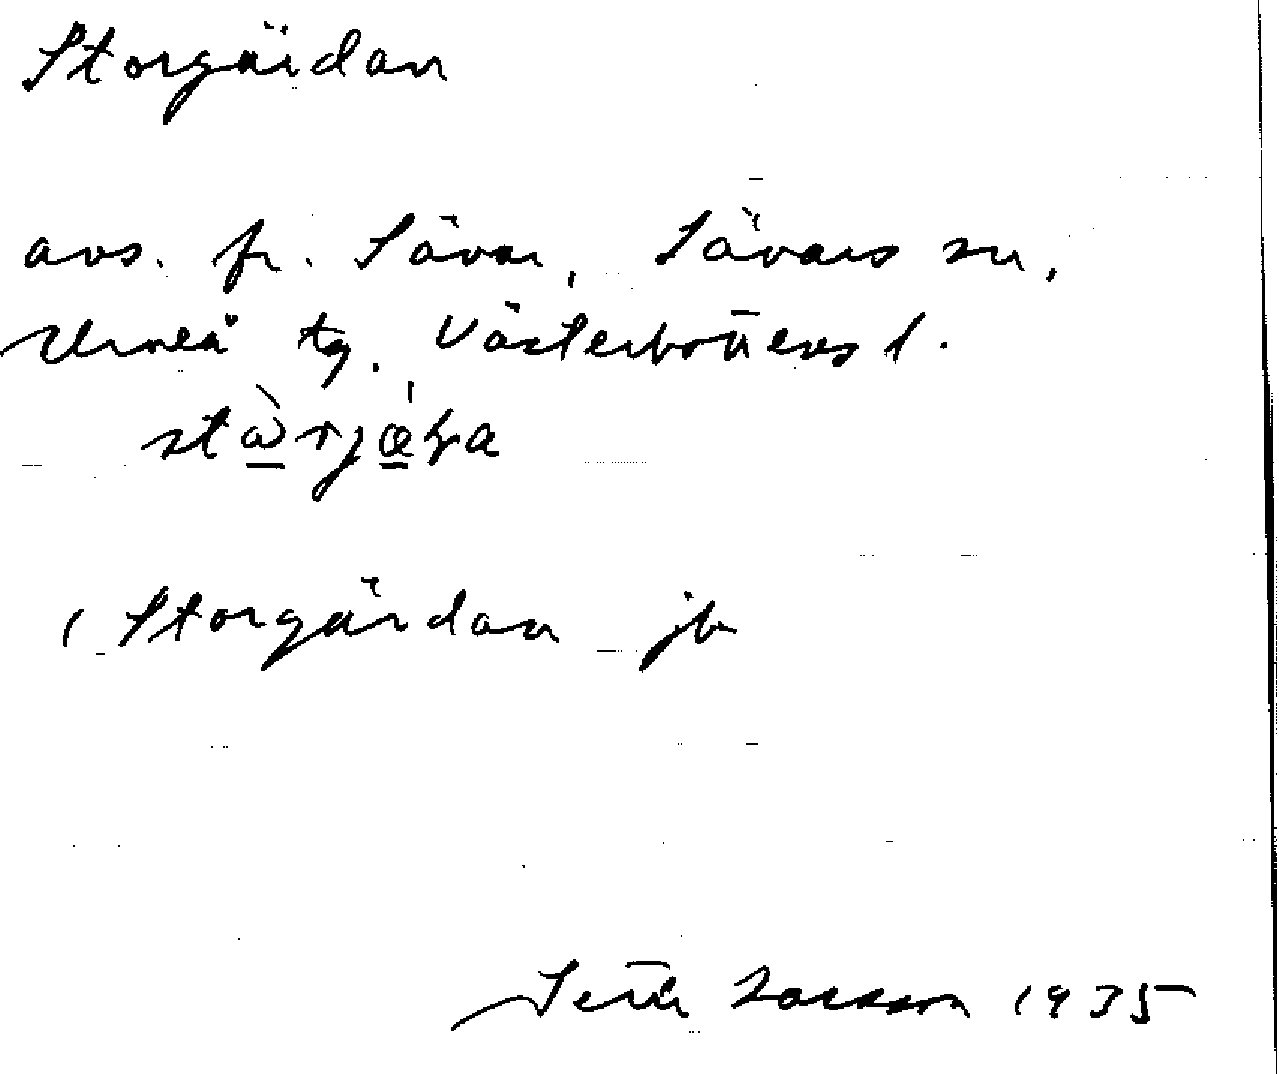 Storgärdan
avs. fr. Sävar, Sävars sn,
Umeå tg. Västerbottens l.
Storgärdan jb
Larsson 1935